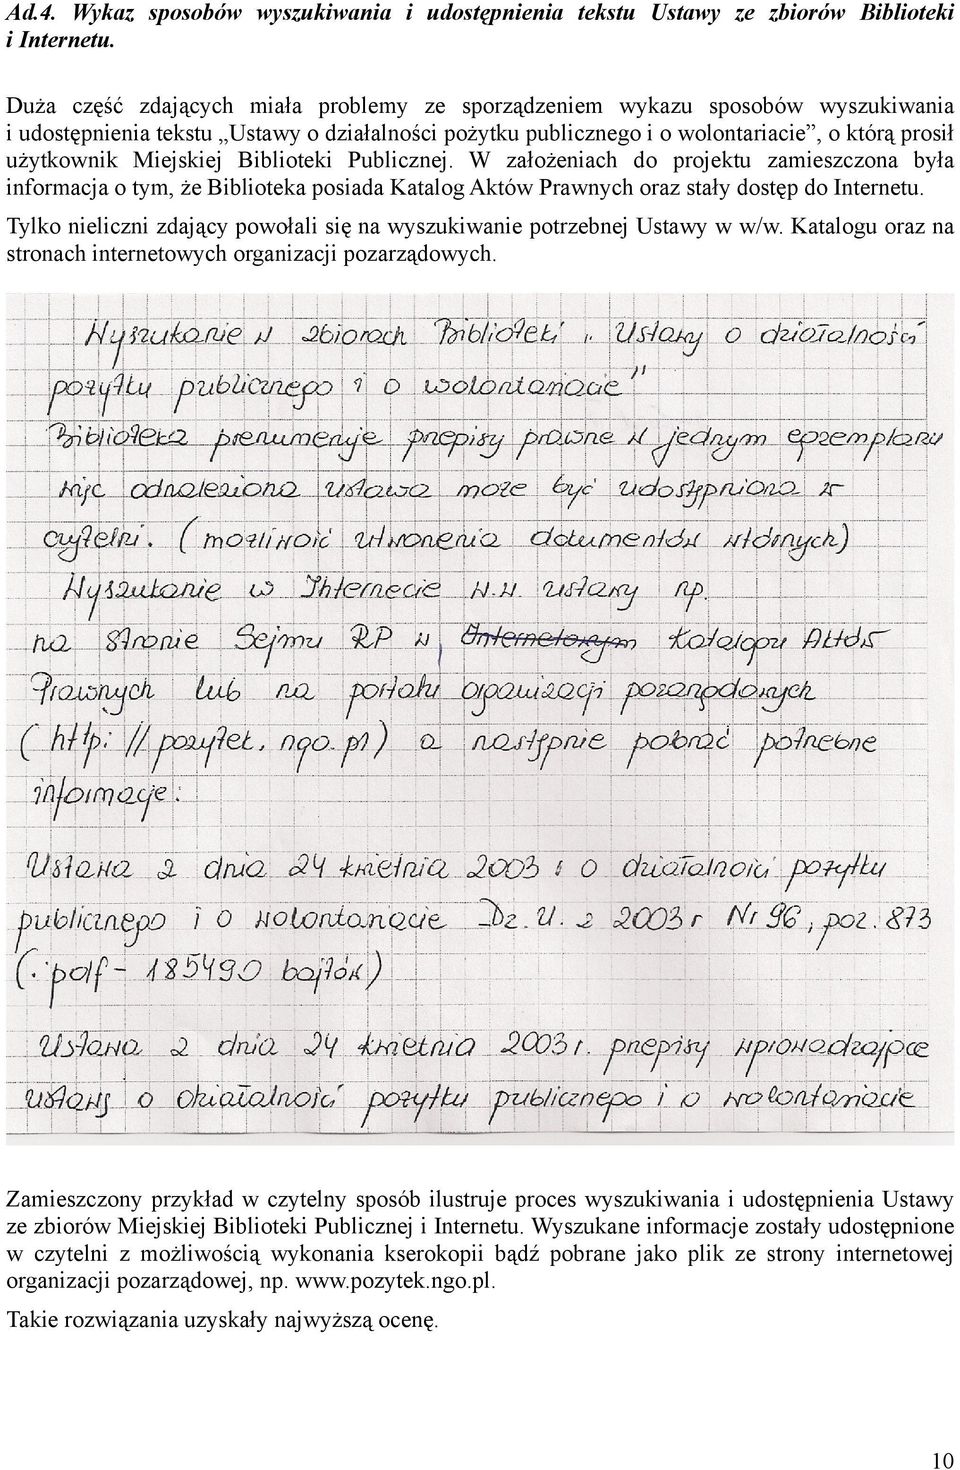 Ad.4. Wykaz sposobów wyszukiwania i udostępnienia tekstu Ustawy ze zbiorów Biblioteki
i Internetu.
Duża część zdających miała problemy ze sporządzeniem wykazu sposobów wyszukiwania
i udostępnienia tekstu „Ustawy o działalności pożytku publicznego i o wolontariacie”, o którą prosił
użytkownik Miejskiej Biblioteki Publicznej. W założeniach do projektu zamieszczona była
informacja o tym, że Biblioteka posiada Katalog Aktów Prawnych oraz stały dostęp do Internetu.
Tylko nieliczni zdający powołali się na wyszukiwanie potrzebnej Ustawy w w/w. Katalogu oraz na
stronach internetowych organizacji pozarządowych.
Wyszukanie w zbiorach Biblioteki „Ustawy o działalności
pożytku publicznego i o wolontariacie”
Biblioteka prenumeruje przepisy prawne w jednym egzemplarzu
więc odnaleziona ustawa może być udostępniona w
czytelni. (możliwość utworzenia dokumentów wtórnych)
Wyszukanie w Internecie w.w. ustawy np.
na stronie Sejmu RP w Internetowym Katalogu Aktów
Prawnych lub na portalu organizacji pozarządowych
(http://pozytek.ngo.pl) a następnie pobrać potrzebne
informacje:
Ustawa z dnia 24 kwietnia 2003 r o działalności pożytku
publicznego i o wolontariacie Dz.U. z 2003 r Nr 96, poz. 873
(.pdf - 185490 bajtów)
Ustawa z dnia 24 kwietnia 2003 r. przepisy wprowadzające
ustawę o działalności pożytku publicznego i o wolontariacie
Zamieszczony przykład w czytelny sposób ilustruje proces wyszukiwania i udostępnienia Ustawy
ze zbiorów Miejskiej Biblioteki Publicznej i Internetu. Wyszukane informacje zostały udostępnione
w czytelni z możliwością wykonania kserokopii bądź pobrane jako plik ze strony internetowej
organizacji pozarządowej, np. www.pozytek.ngo.pl.
Takie rozwiązania uzyskały najwyższą ocenę.
10